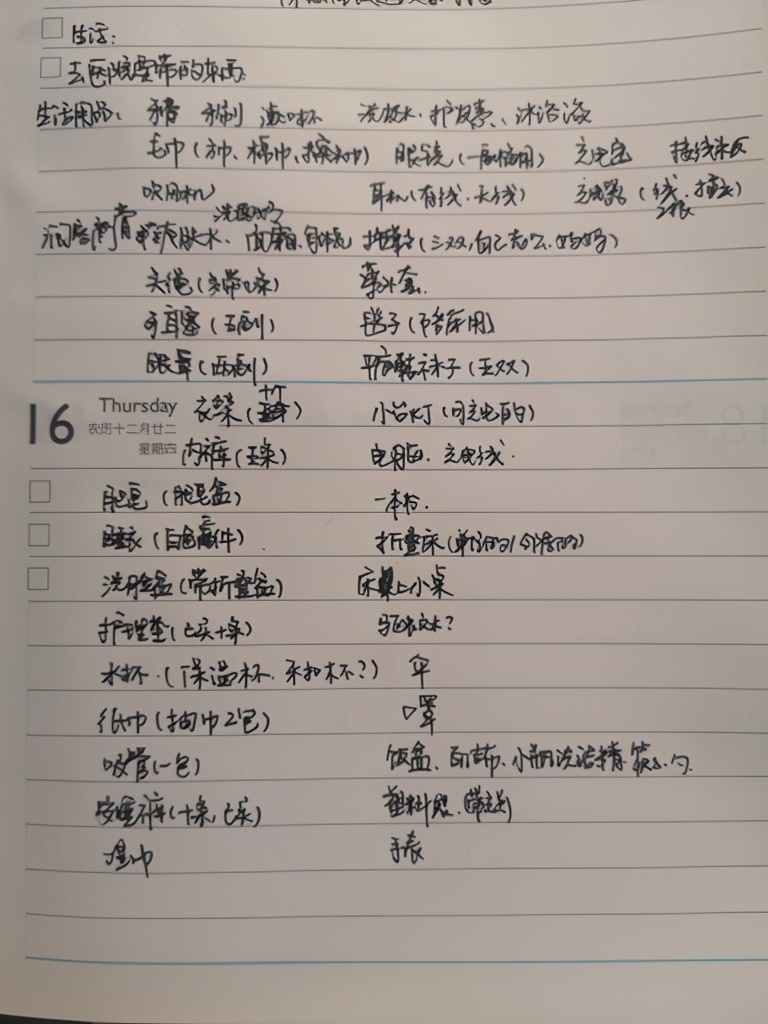 生活:
去医院要带的东西:
生活用品: 牙膏 牙刷 漱口杯 洗发水、护发素、沐浴液
毛巾(方巾、棉巾、擦头巾) 眼镜(一副备用) 充电宝 接线板
吹风机 耳机(有线、无线) 充电器(线、插头)
2根
洗面奶
润唇膏 爽肤水、面霜、 拖鞋(三双,自己 妈妈)
头绳(多带几条)
耳塞(五副) 毯子(陪客用)
眼罩(两副) 袜子(五双)
十个
16 Thursday 衣架( ) 小台灯(可充电的)
农历十二月廿二
星期四 内裤(五条) 电脑、充电线.
肥皂(肥皂盒) 一本书.
睡衣( 件) 折叠床(
洗脸盆(带折叠盆) 床上小桌
护理垫(已买十条) 驱蚊水?
水杯.(保温杯. ?) 伞
纸巾(抽巾2包) 口罩
吸管(一包) 饭盒、 、小瓶洗洁精、筷子、勺.
安睡裤(十条,已买) 塑料
湿巾 手表